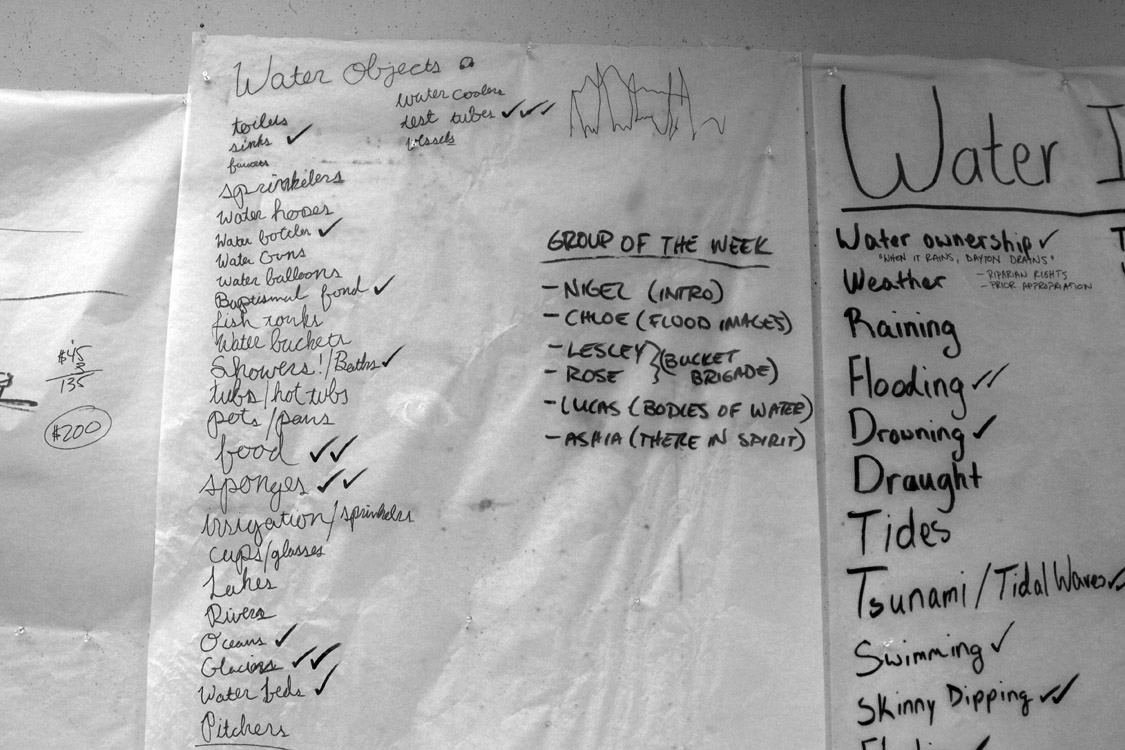 $45
3
135
$200
Water Objects
toilets
sinks ✓
faucets
sprinkelers
Water hoses
Water bottles ✓
Water Guns
Water balloons
Baptismal fond ✓
fish tanks
Water buckets
Showers!/Baths ✓
tubs/hot tubs
pots/pans
food ✓✓
sponges ✓✓
irrigation/sprinkelers
cups/glasses
Lakes
Rivers
Oceans ✓
Glaciers ✓✓
Water beds ✓
Pitchers
Water coolers
test tubes ✓✓✓
Vessels
GROUP OF THE WEEK
- NIGEL (INTRO)
- CHLOE (FLOOD IMAGES)
- LESLEY } (BUCKET
- ROSE } BRIGADE)
- LUCAS (BODIES OF WATER)
- ASHIA (THERE IN SPIRIT)
Water I
Water ownership ✓
"WHEN IT RAINS, DAYTON DRAINS"
Weather
- RIPARIAN RIGHTS
- PRIOR APPROPRIATION
Raining
Flooding ✓✓
Drowning ✓
Draught
Tides
Tsunami/Tidal Waves ✓
Swimming ✓
Skinny Dipping ✓✓